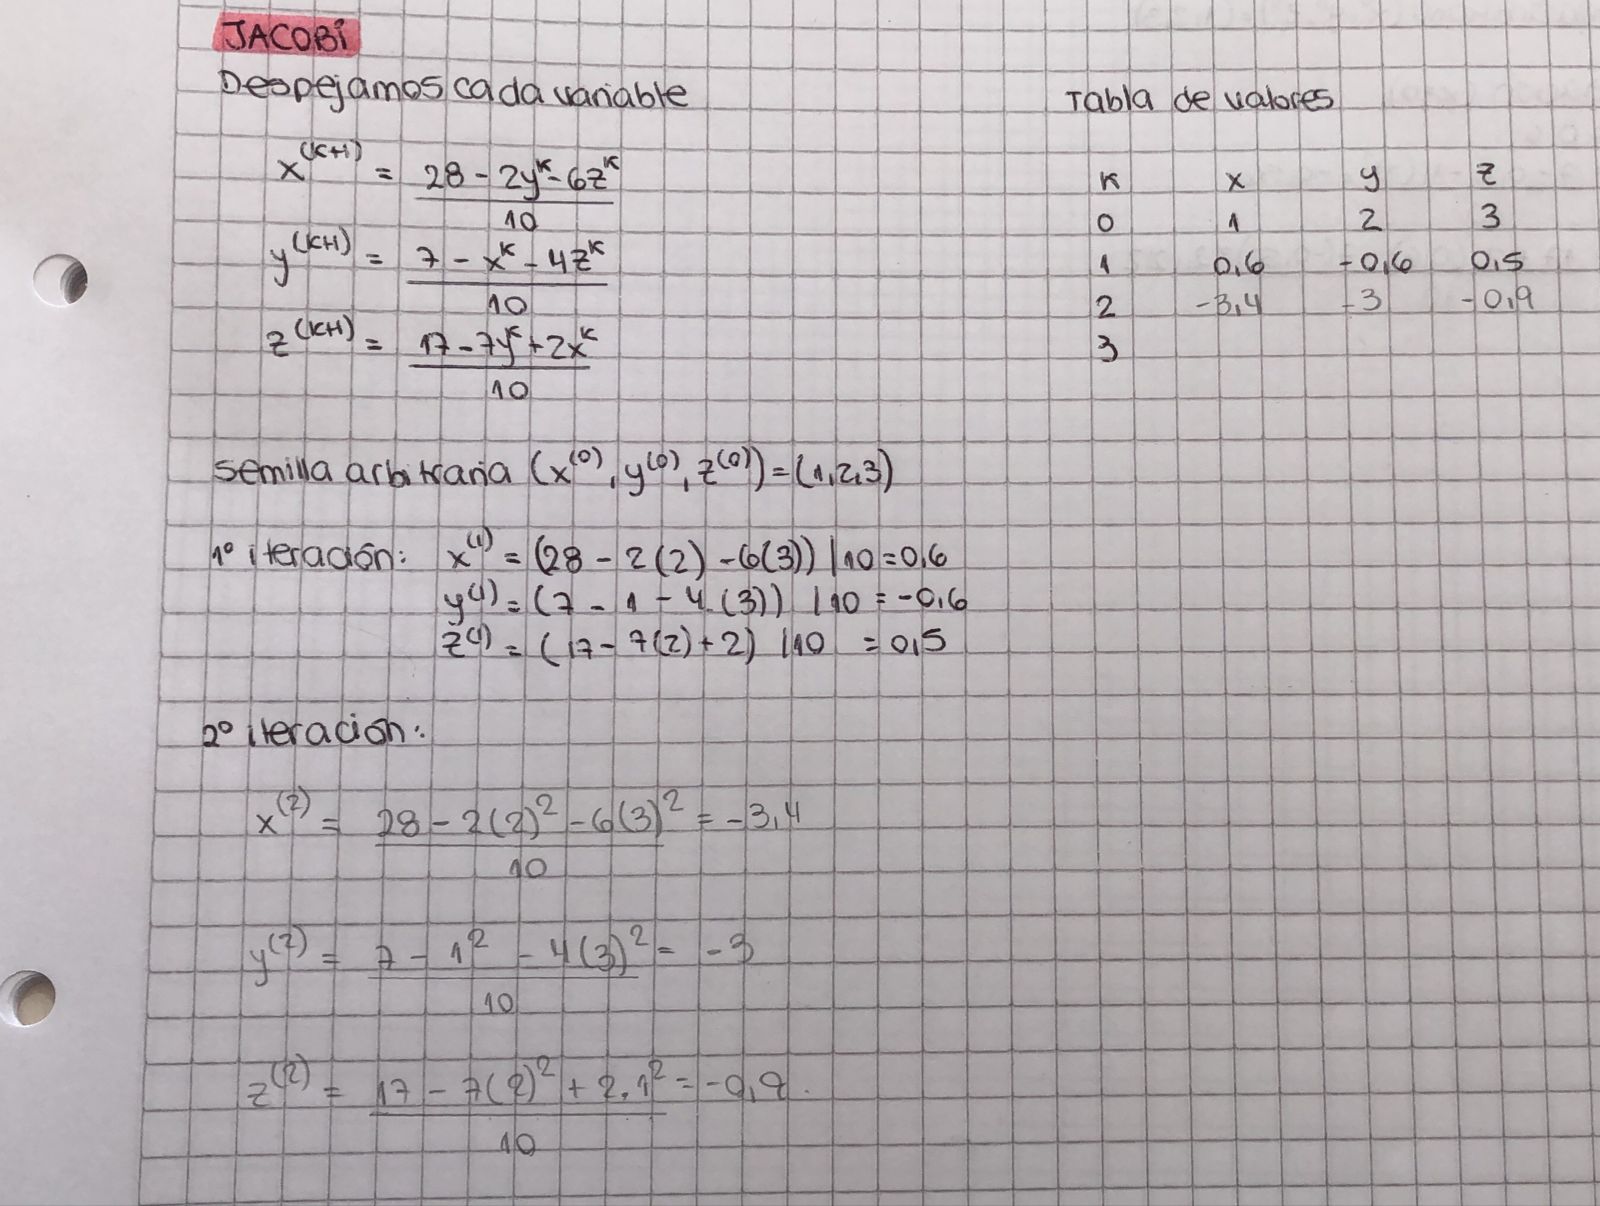 JACOBI
Despejamos cada variable
x^(k+1) = 28 - 2y^k - 6z^k
10
y^(k+1) = 7 - x^k - 4z^k
10
z^(k+1) = 17 - 7y^k + 2x^k
10
Tabla de valores
k x y z
0 1 2 3
1 0,6 -0,6 0,5
2 -3,4 -3 -0,9
3
Semilla arbitraria (x^(0), y^(0), z^(0)) = (1,2,3)
1º iteración: x^(1) = (28 - 2(2) - 6(3)) /10 = 0,6
y^(1) = (7 - 1 - 4.(3)) /10 = -0,6
z^(1) = (17 - 7(2) + 2) /10 = 0,5
2º iteración:
x^(2) = 28 - 2(2)^2 - 6(3)^2 = -3,4
10
y^(2) = 7 - 1^2 - 4(3)^2 = -3
10
z^(2) = 17 - 7(2)^2 + 2.1^2 = -0,9.
10